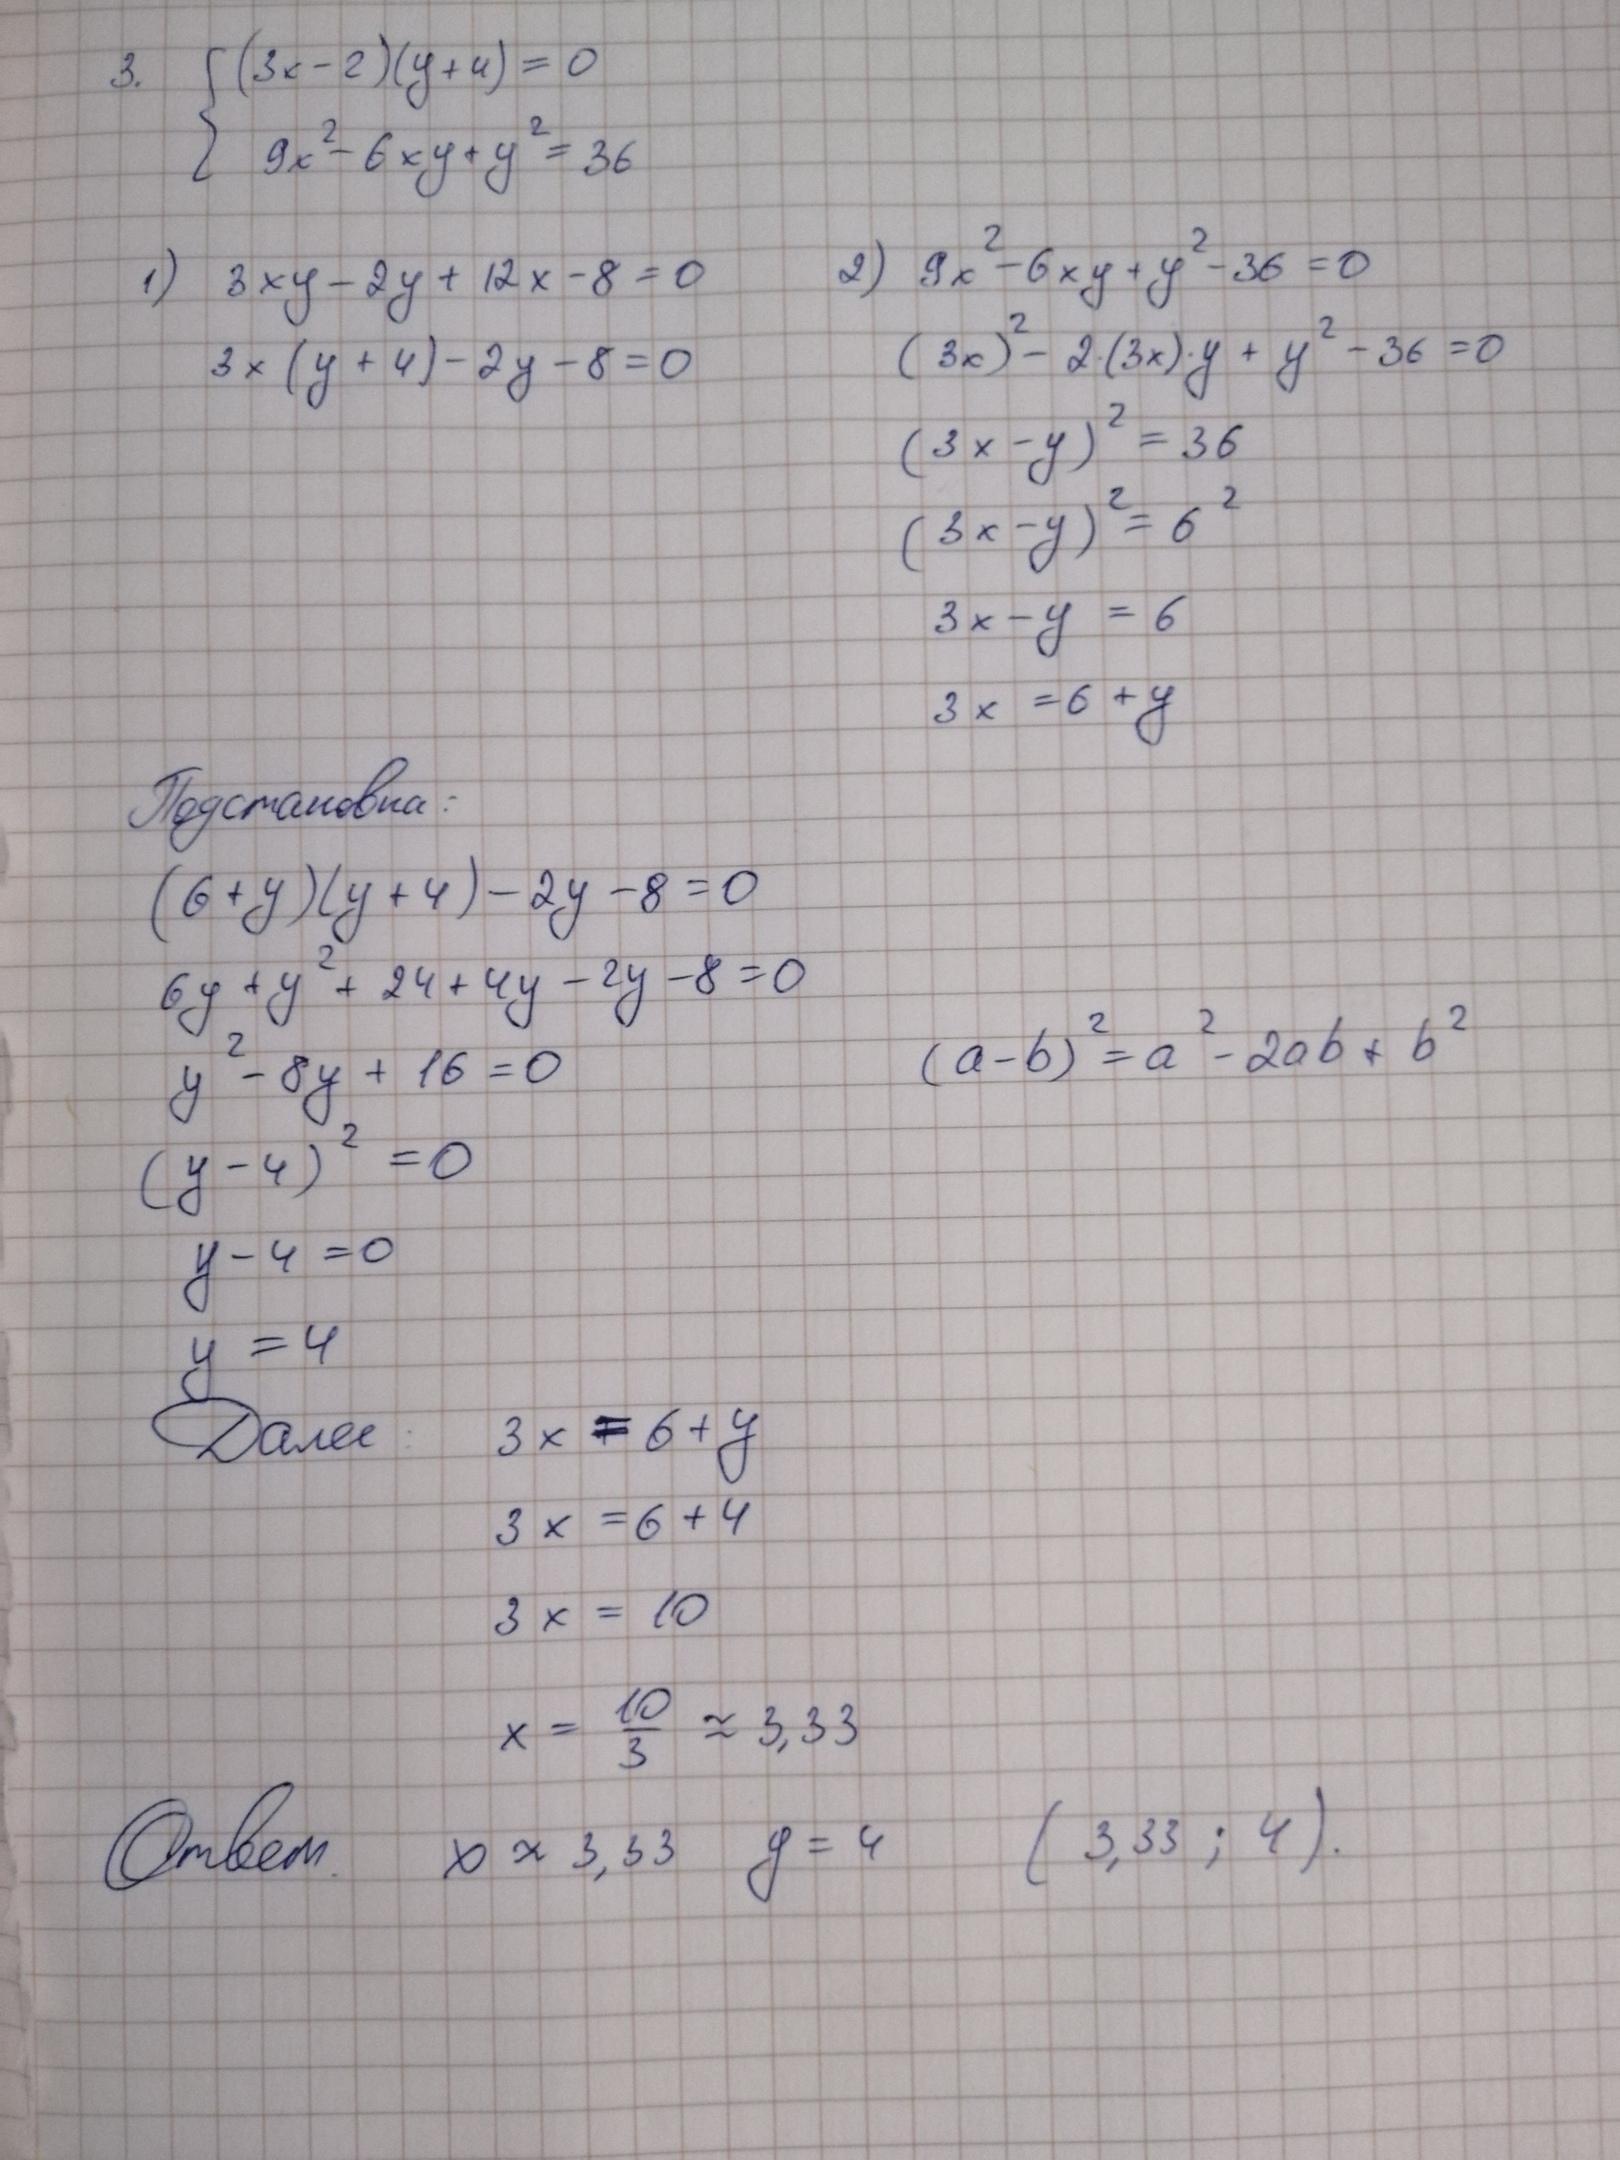 3. { (3x-2)(y+4) = 0
9x² - 6xy + y² = 36
1) 3xy - 2y + 12x - 8 = 0
3x (y + 4) - 2y - 8 = 0
2) 9x² - 6xy + y² - 36 = 0
(3x)² - 2·(3x)·y + y² - 36 = 0
(3x - y)² = 36
(3x - y)² = 6²
3x - y = 6
3x = 6 + y
Подстановка:
(6 + y)(y + 4) - 2y - 8 = 0
6y + y² + 24 + 4y - 2y - 8 = 0
y² - 8y + 16 = 0
(a - b)² = a² - 2ab + b²
(y - 4)² = 0
y - 4 = 0
y = 4
Далее: 3x = 6 + y
3x = 6 + 4
3x = 10
x = 10/3 ≈ 3,33
Ответ. x ≈ 3,33 y = 4 (3,33 ; 4).